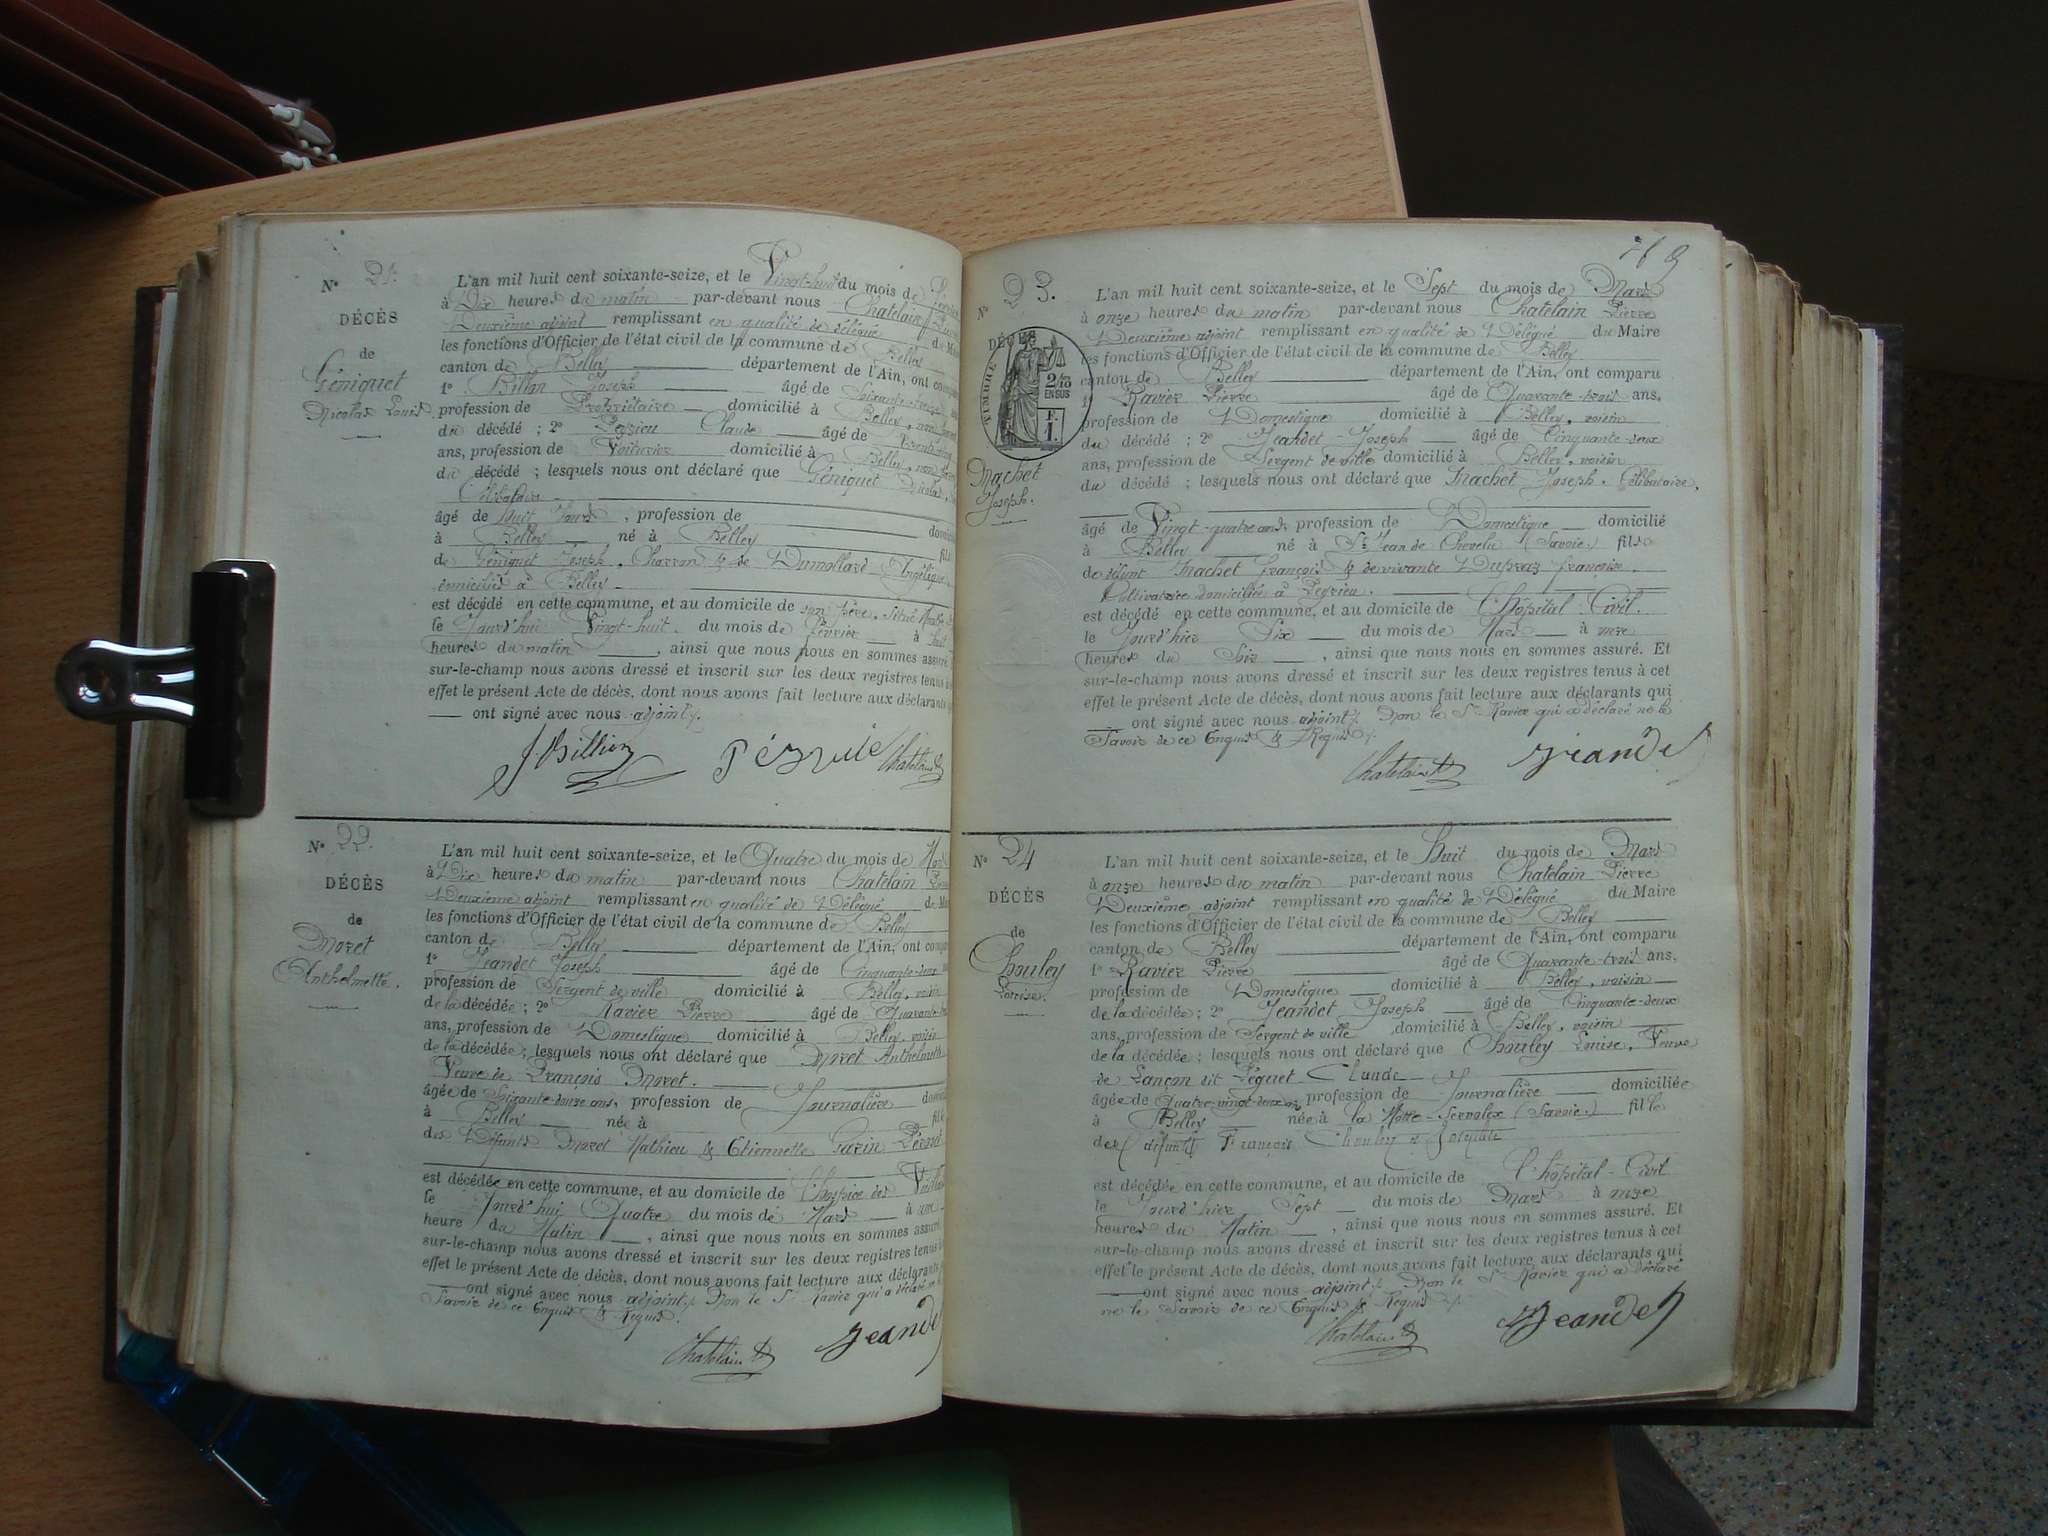 N° 21.
DÉCÈS
de
Géniquet
Nicolas Louis
L'an mil huit cent soixante-seize, et le Vingt-huit du mois de
à Dix heures du matin par-devant nous Chatelain
Deuxième adjoint remplissant en qualité de délégué du
les fonctions d'Officier de l'état civil de la commune de Belley
canton de Belley département de l'Ain, ont
1° Billon Joseph âgé de Soixante-treize
profession de Propriétaire domicilié à Belley, non
du décédé ; 2° Claude âgé de
ans, profession de Voiturier domicilié à Belley, non
du décédé ; lesquels nous ont déclaré que Géniquet Nicolas
Célibataire
âgé de huit Jours, profession de
à Belley né à Belley fils
de Géniquet Joseph, Charron & de Dumollard Angélique
domiciliés à Belley
est décédé en cette commune, et au domicile de son père, situé
le Jourd'hui Vingt-huit du mois de Février à huit
heures du matin, ainsi que nous nous en sommes assuré
sur-le-champ nous avons dressé et inscrit sur les deux registres tenus
effet le présent Acte de décès, dont nous avons fait lecture aux déclarants
ont signé avec nous adjoint.
J Billion Chatelain
N° 22.
DÉCÈS
de
Moret
Anthelmette.
L'an mil huit cent soixante-seize, et le Quatre du mois de
à Dix heures du matin par-devant nous Chatelain
Deuxième adjoint remplissant en qualité de Délégué
les fonctions d'Officier de l'état civil de la commune de Belley
canton de Belley département de l'Ain, ont
1° Jeandet Joseph âgé de Cinquante-deux
profession de Sergent de ville domicilié à Belley, voisin
de la décédée ; 2° Ravier Pierre âgé de
ans, profession de Domestique domicilié à Belley, voisin
de la décédée ; lesquels nous ont déclaré que Moret Anthelmette
Veuve de François Moret.
âgée de Soixante-douze ans, profession de Journalière
à Belley née à
des Défunts Moret Mathieu & Etiennette
est décédée en cette commune, et au domicile de l'hospice des
le Jourd'hui Quatre du mois de Mars à
heure du Matin, ainsi que nous nous en sommes assuré
sur-le-champ nous avons dressé et inscrit sur les deux registres tenus
effet le présent Acte de décès, dont nous avons fait lecture aux déclarants
ont signé avec nous adjoint. Non le Sr Ravier qui a déclaré
Savoir de ce Enquis & Requis.
Chatelain Jeandet
N° 23.
DÉCÈS
TIMBRE
2/10
EN SUS
F.
1.
Machet
Joseph.
L'an mil huit cent soixante-seize, et le Sept du mois de Mars
à onze heures du matin par-devant nous Chatelain Pierre
Deuxième adjoint remplissant en qualité de Délégué du Maire
les fonctions d'Officier de l'état civil de la commune de Belley
canton de Belley département de l'Ain, ont comparu
1° Ravier Pierre âgé de Quarante-trois ans,
profession de Domestique domicilié à Belley, voisin
du décédé ; 2° Jeandet Joseph âgé de Cinquante-deux
ans, profession de Sergent de ville domicilié à Belley, voisin
du décédé ; lesquels nous ont déclaré que Machet Joseph, Célibataire,
âgé de Vingt-quatre ans profession de Domestique domicilié
à Belley né à St Jean de Chevelu (Savoie) fils
de défunt Machet François & de vivante Dupraz Françoise.
Cultivatrice domiciliée à
est décédé en cette commune, et au domicile de l'hôpital Civil.
le Jourd'hier Six du mois de Mars à onze
heures du Soir, ainsi que nous nous en sommes assuré. Et
sur-le-champ nous avons dressé et inscrit sur les deux registres tenus à cet
effet le présent Acte de décès, dont nous avons fait lecture aux déclarants qui
ont signé avec nous adjoint. Non le Sr Ravier qui a déclaré ne le
Savoir de ce Enquis & Requis.
Chatelain Jeandet
N° 24
DÉCÈS
de
Chouley
Louise.
L'an mil huit cent soixante-seize, et le Huit du mois de Mars
à onze heures du matin par-devant nous Chatelain Pierre
Deuxième adjoint remplissant en qualité de Délégué du Maire
les fonctions d'Officier de l'état civil de la commune de Belley
canton de Belley département de l'Ain, ont comparu
1° Ravier Pierre âgé de Quarante-trois ans,
profession de Domestique domicilié à Belley, voisin
de la décédée ; 2° Jeandet Joseph âgé de Cinquante-deux
ans, profession de Sergent de ville domicilié à Belley, voisin
de la décédée ; lesquels nous ont déclaré que Chouley Louise, Veuve
de Lançon dit Claude
âgée de Quatre-vingt-deux ans profession de Journalière domiciliée
à Belley née à la Motte-Servolex (Savoie.) fille
des défunts François Chouley &
est décédée en cette commune, et au domicile de l'hôpital-Civil
le Jourd'hier Sept du mois de Mars à onze
heures du Matin, ainsi que nous nous en sommes assuré. Et
sur-le-champ nous avons dressé et inscrit sur les deux registres tenus à cet
effet le présent Acte de décès, dont nous avons fait lecture aux déclarants qui
ont signé avec nous adjoint. Non le Sr Ravier qui a déclaré
ne le Savoir de ce Enquis & Requis
Chatelain Jeandet